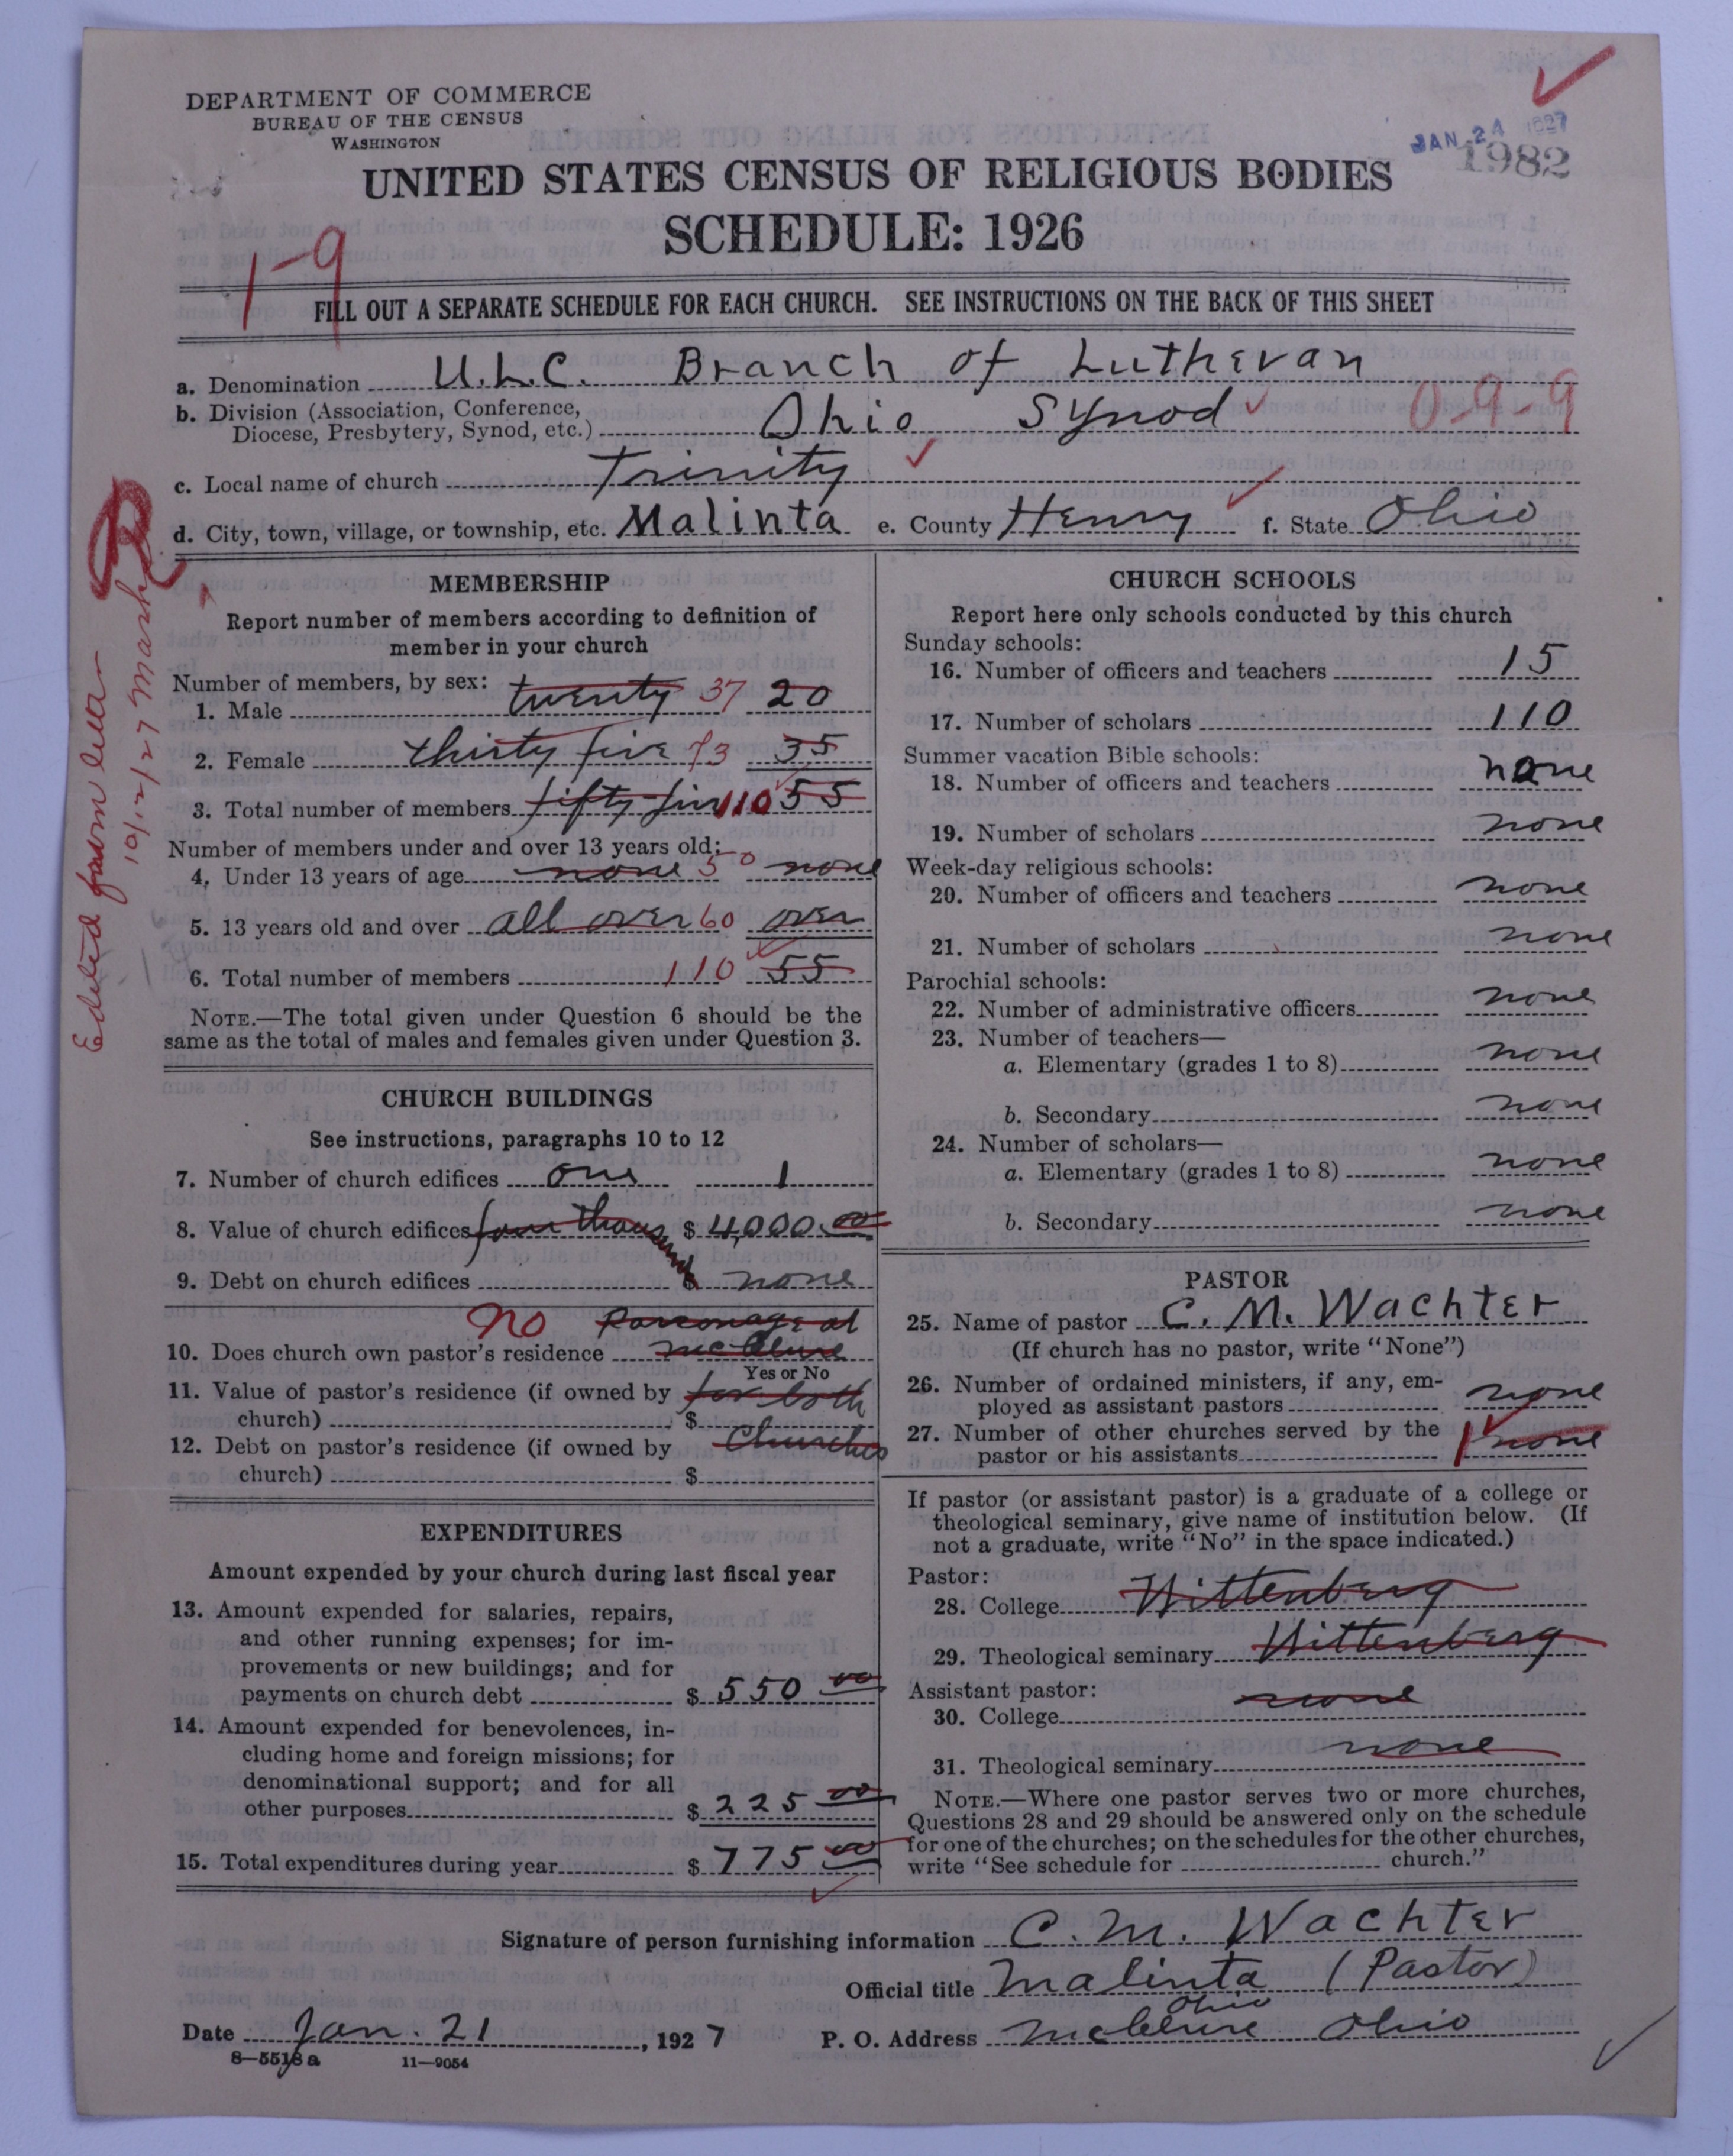 DEPARTMENT OF COMMERCE
BUREAU OF THE CENSUS
WASHINGTON
JAN 24 1927
1982
UNITED STATES CENSUS OF RELIGIOUS BODIES
SCHEDULE: 1926
1-9
FILL OUT A SEPARATE SCHEDULE FOR EACH CHURCH. SEE INSTRUCTIONS ON THE BACK OF THIS SHEET
a. Denomination U.L.C. Branch of Lutheran
b. Division (Association, Conference, Diocese, Presbytery, Synod, etc.) Ohio Synod 0-9-9
c. Local name of church Trinity
d. City, town, village, or township, etc. Malinta e. County Henry f. State Ohio
Edited from letter
10/12/27 Marsh
MEMBERSHIP
Report number of members according to definition of
member in your church
Number of members, by sex:
1. Male twenty 37 20
2. Female thirty five 73 35
3. Total number of members fifty-five 110 55
Number of members under and over 13 years old:
4. Under 13 years of age none 50 none
5. 13 years old and over all over 60 over
6. Total number of members 110 55
NOTE.—The total given under Question 6 should be the
same as the total of males and females given under Question 3.
CHURCH BUILDINGS
See instructions, paragraphs 10 to 12
7. Number of church edifices one 1
8. Value of church edifices four thousand $ 4,000.00
9. Debt on church edifices $ none
No Parsonage at
10. Does church own pastor's residence McClure
Yes or No
11. Value of pastor's residence (if owned by for both
church) $
12. Debt on pastor's residence (if owned by Churches
church) $
EXPENDITURES
Amount expended by your church during last fiscal year
13. Amount expended for salaries, repairs,
and other running expenses; for im-
provements or new buildings; and for
payments on church debt $ 550 00
14. Amount expended for benevolences, in-
cluding home and foreign missions; for
denominational support; and for all
other purposes $ 225 00
15. Total expenditures during year $ 775 00
CHURCH SCHOOLS
Report here only schools conducted by this church
Sunday schools:
16. Number of officers and teachers 15
17. Number of scholars 110
Summer vacation Bible schools:
18. Number of officers and teachers none
19. Number of scholars none
Week-day religious schools:
20. Number of officers and teachers none
21. Number of scholars none
Parochial schools:
22. Number of administrative officers none
23. Number of teachers—
a. Elementary (grades 1 to 8) none
b. Secondary none
24. Number of scholars—
a. Elementary (grades 1 to 8) none
b. Secondary none
PASTOR
25. Name of pastor C. M. Wachter
(If church has no pastor, write "None")
26. Number of ordained ministers, if any, em-
ployed as assistant pastors none
27. Number of other churches served by the
pastor or his assistants 1 none
If pastor (or assistant pastor) is a graduate of a college or
theological seminary, give name of institution below. (If
not a graduate, write "No" in the space indicated.)
Pastor:
28. College Wittenberg
29. Theological seminary Wittenberg
Assistant pastor:
30. College none
31. Theological seminary none
NOTE.—Where one pastor serves two or more churches,
Questions 28 and 29 should be answered only on the schedule
for one of the churches; on the schedules for the other churches,
write "See schedule for church."
Signature of person furnishing information C. M. Wachter
Official title Malinta (Pastor)
Ohio
Date Jan. 21, 1927 P. O. Address McClure Ohio
8—5518a 11—9054